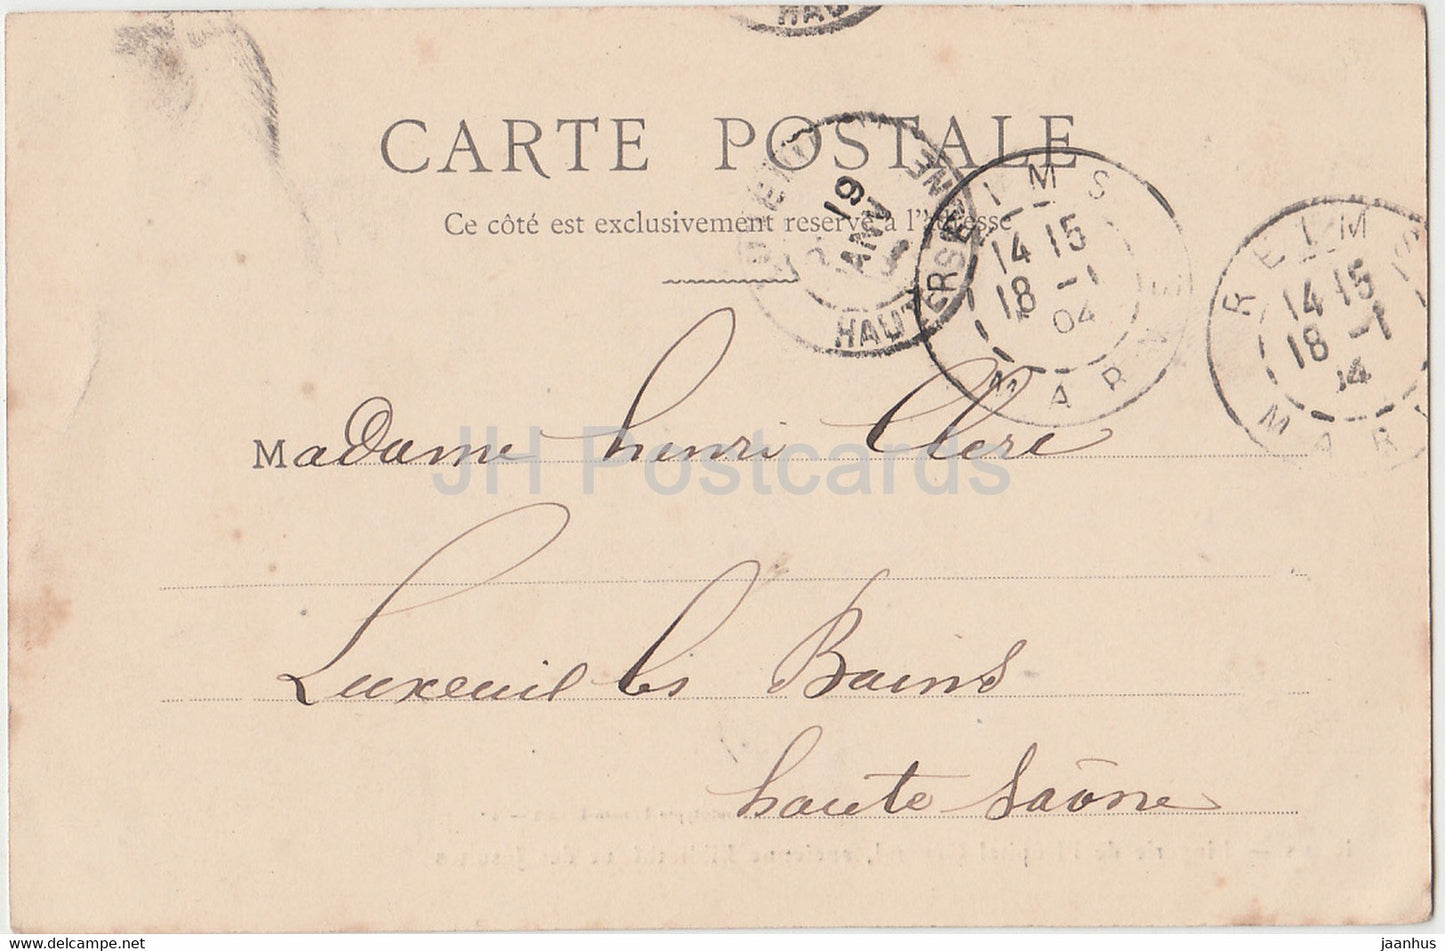 HAU
CARTE POSTALE
Ce côté est exclusivement réservé à l'Adresse
19
JANV
HAUTE
REIMS
14 15
18 - 1
04
MARNE
REIMS
14 15
18 - 1
04
MAR
Madame henri Clerc
JH Postcards
Luxeuil les Bains
haute Saône
jaanhus @ delcampe.net